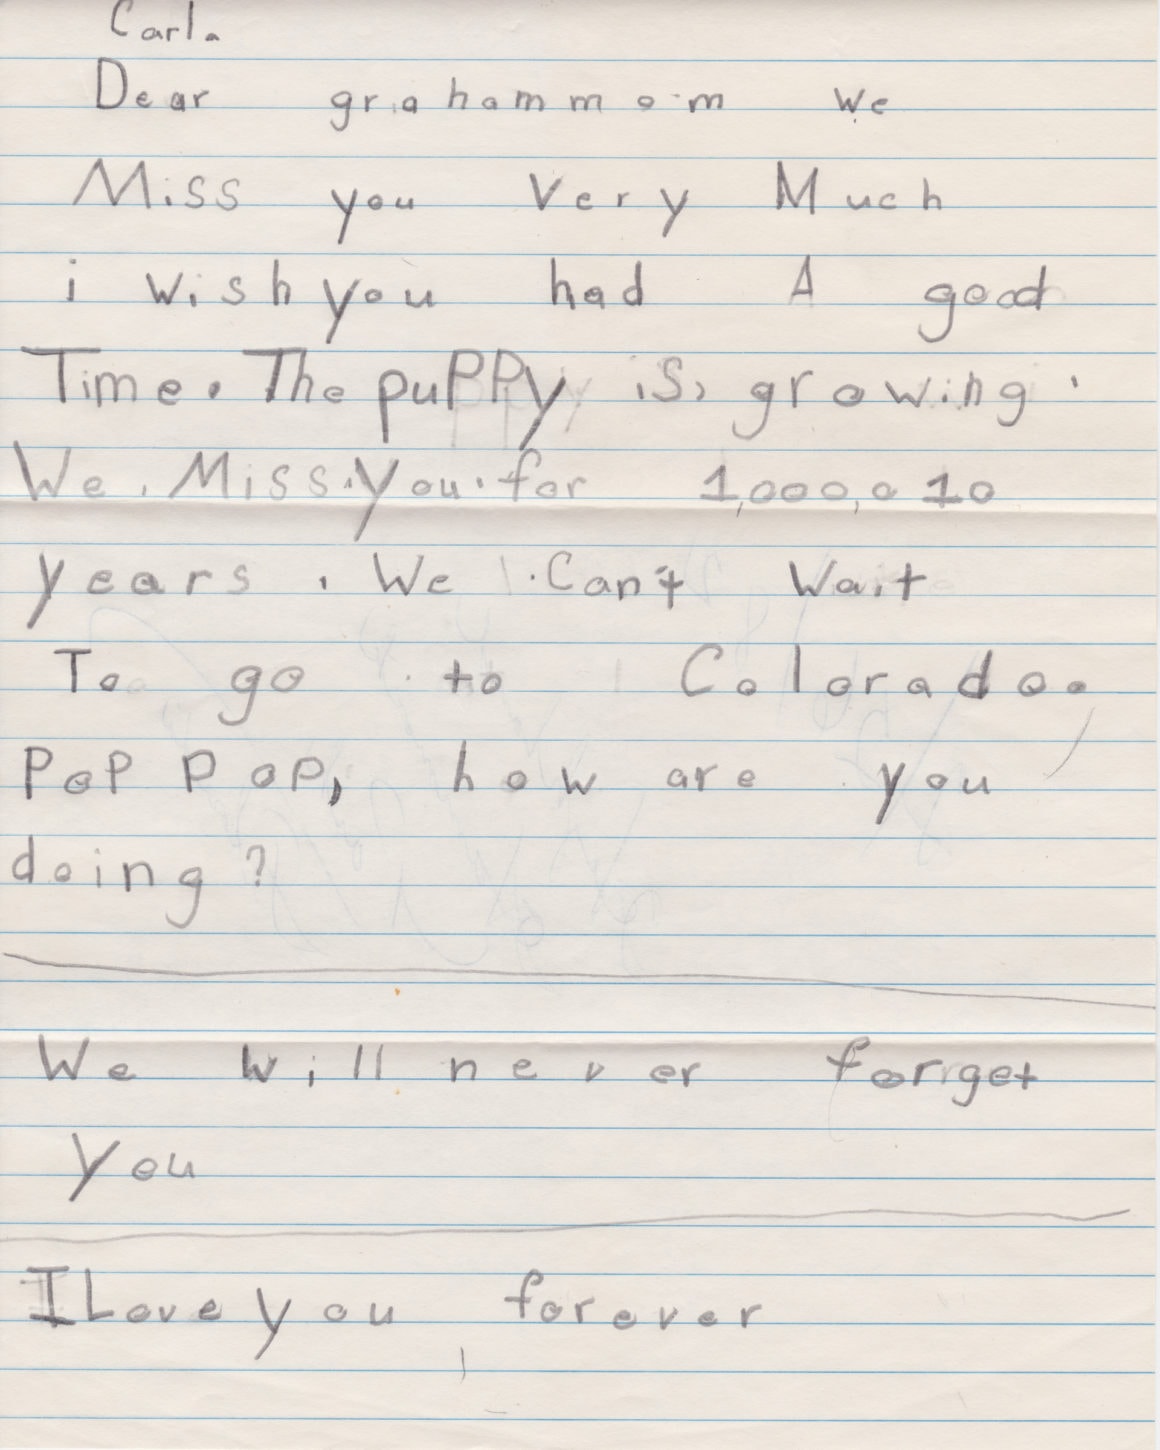 Carla
Dear grahammom we
Miss you Very Much
i wish you had A good
Time. The puPPy is, growing.
We. Miss.you.for 1,000,010
years. We Can't Wait
To go to Colorado.
PoP PoP, how are you
doing?
We will never forget
you
I Love you forever